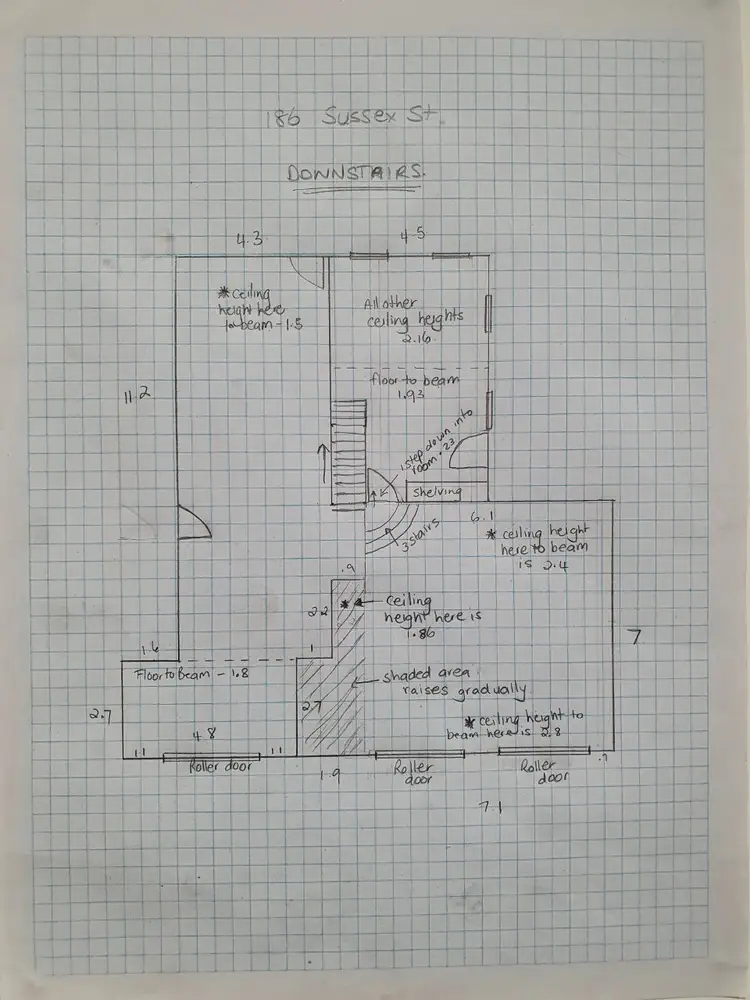 186 Sussex St.
DOWNSTAIRS.
4.3
4.5
* ceiling
height here
to beam - 1.5
All other
ceiling heights
2.16
11.2
floor to beam
1.93
1 step down into
room · 23
shelving
3 stairs
6.1
* ceiling height
here to beam
is 2.4
.9
2.2
* ceiling
height here is
1.86
7
1.6
1
Floor to Beam - 1.8
shaded area
raises gradually
2.7
2.7
* ceiling height to
beam here is 2.8
4.8
1.1
1.1
.7
Roller door
1.9
Roller
door
Roller
door
7.1